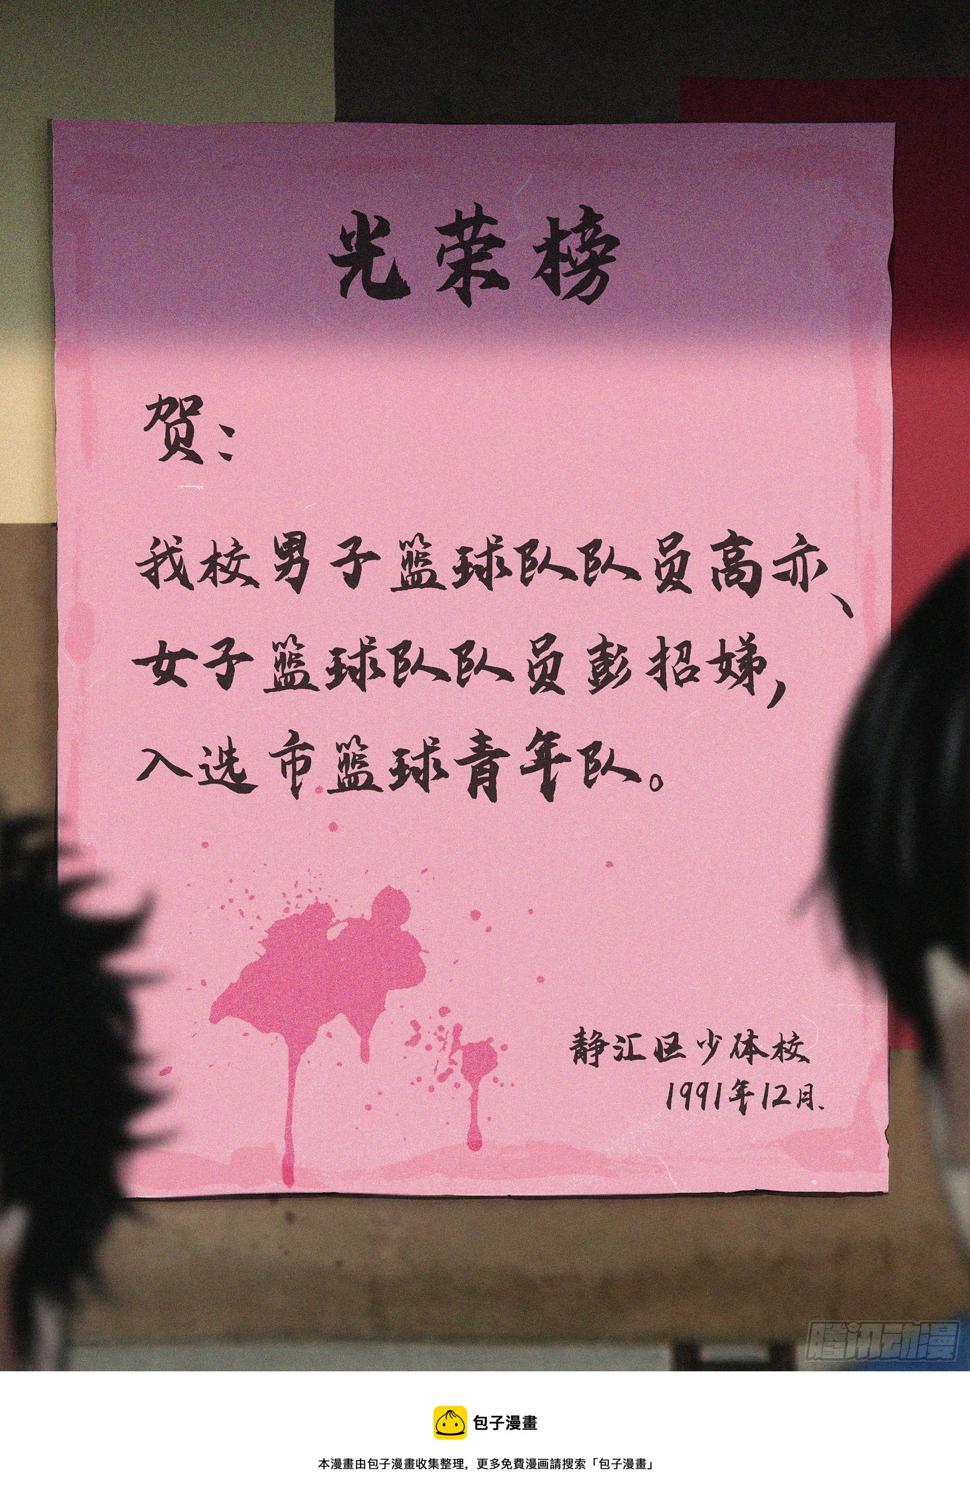 光荣榜
贺：
我校男子篮球队队员高亦、
女子篮球队队员彭招娣，
入选市篮球青年队。
静汇区少体校
1991年12月.
腾讯动漫
包子漫畫
本漫畫由包子漫畫收集整理，更多免費漫画請搜索「包子漫畫」